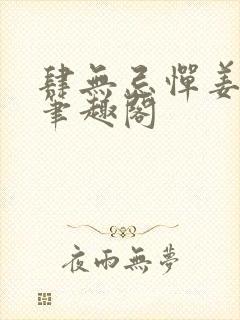 肆無忌憚姜
筆趣閣
夜雨無夢